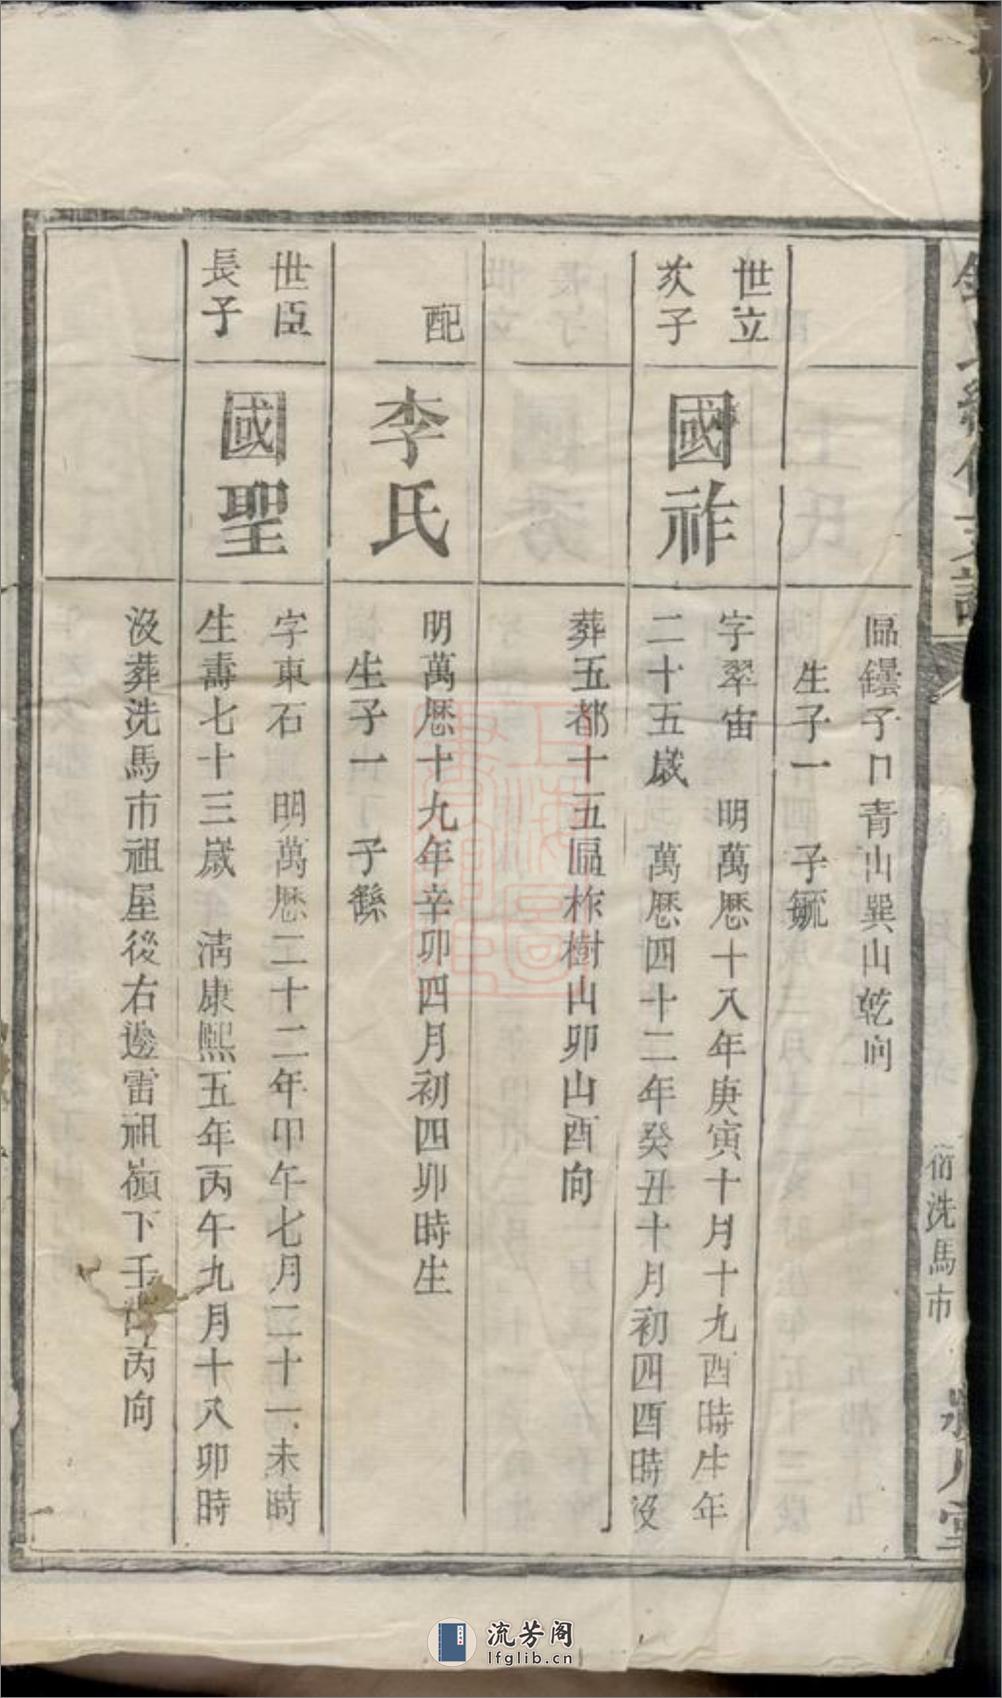 區鑸子口青山巽山乾向
生子一　子毓
世立
次子
國祚
字翠宙　明萬曆十八年庚寅十月十九酉時生年
二十五歲　萬曆四十二年癸丑十月初四酉時沒
葬五都十五區柞樹山卯山酉向
配
李氏
明萬曆十九年辛卯四月初四卯時生
生子一　子繇
世臣
長子
國聖
字東石　明萬曆二十二年甲午七月二十一未時
生壽七十三歲　淸康熙五年丙午九月十八卯時
沒葬洗馬市祖屋後右邊雷祖嶺下壬山丙向
衍洗馬市
流芳阁
lfglib.cn